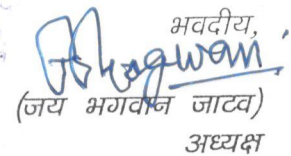 भवदीय,
Bhagwani
(जय भगवान जाटव)
अध्यक्ष